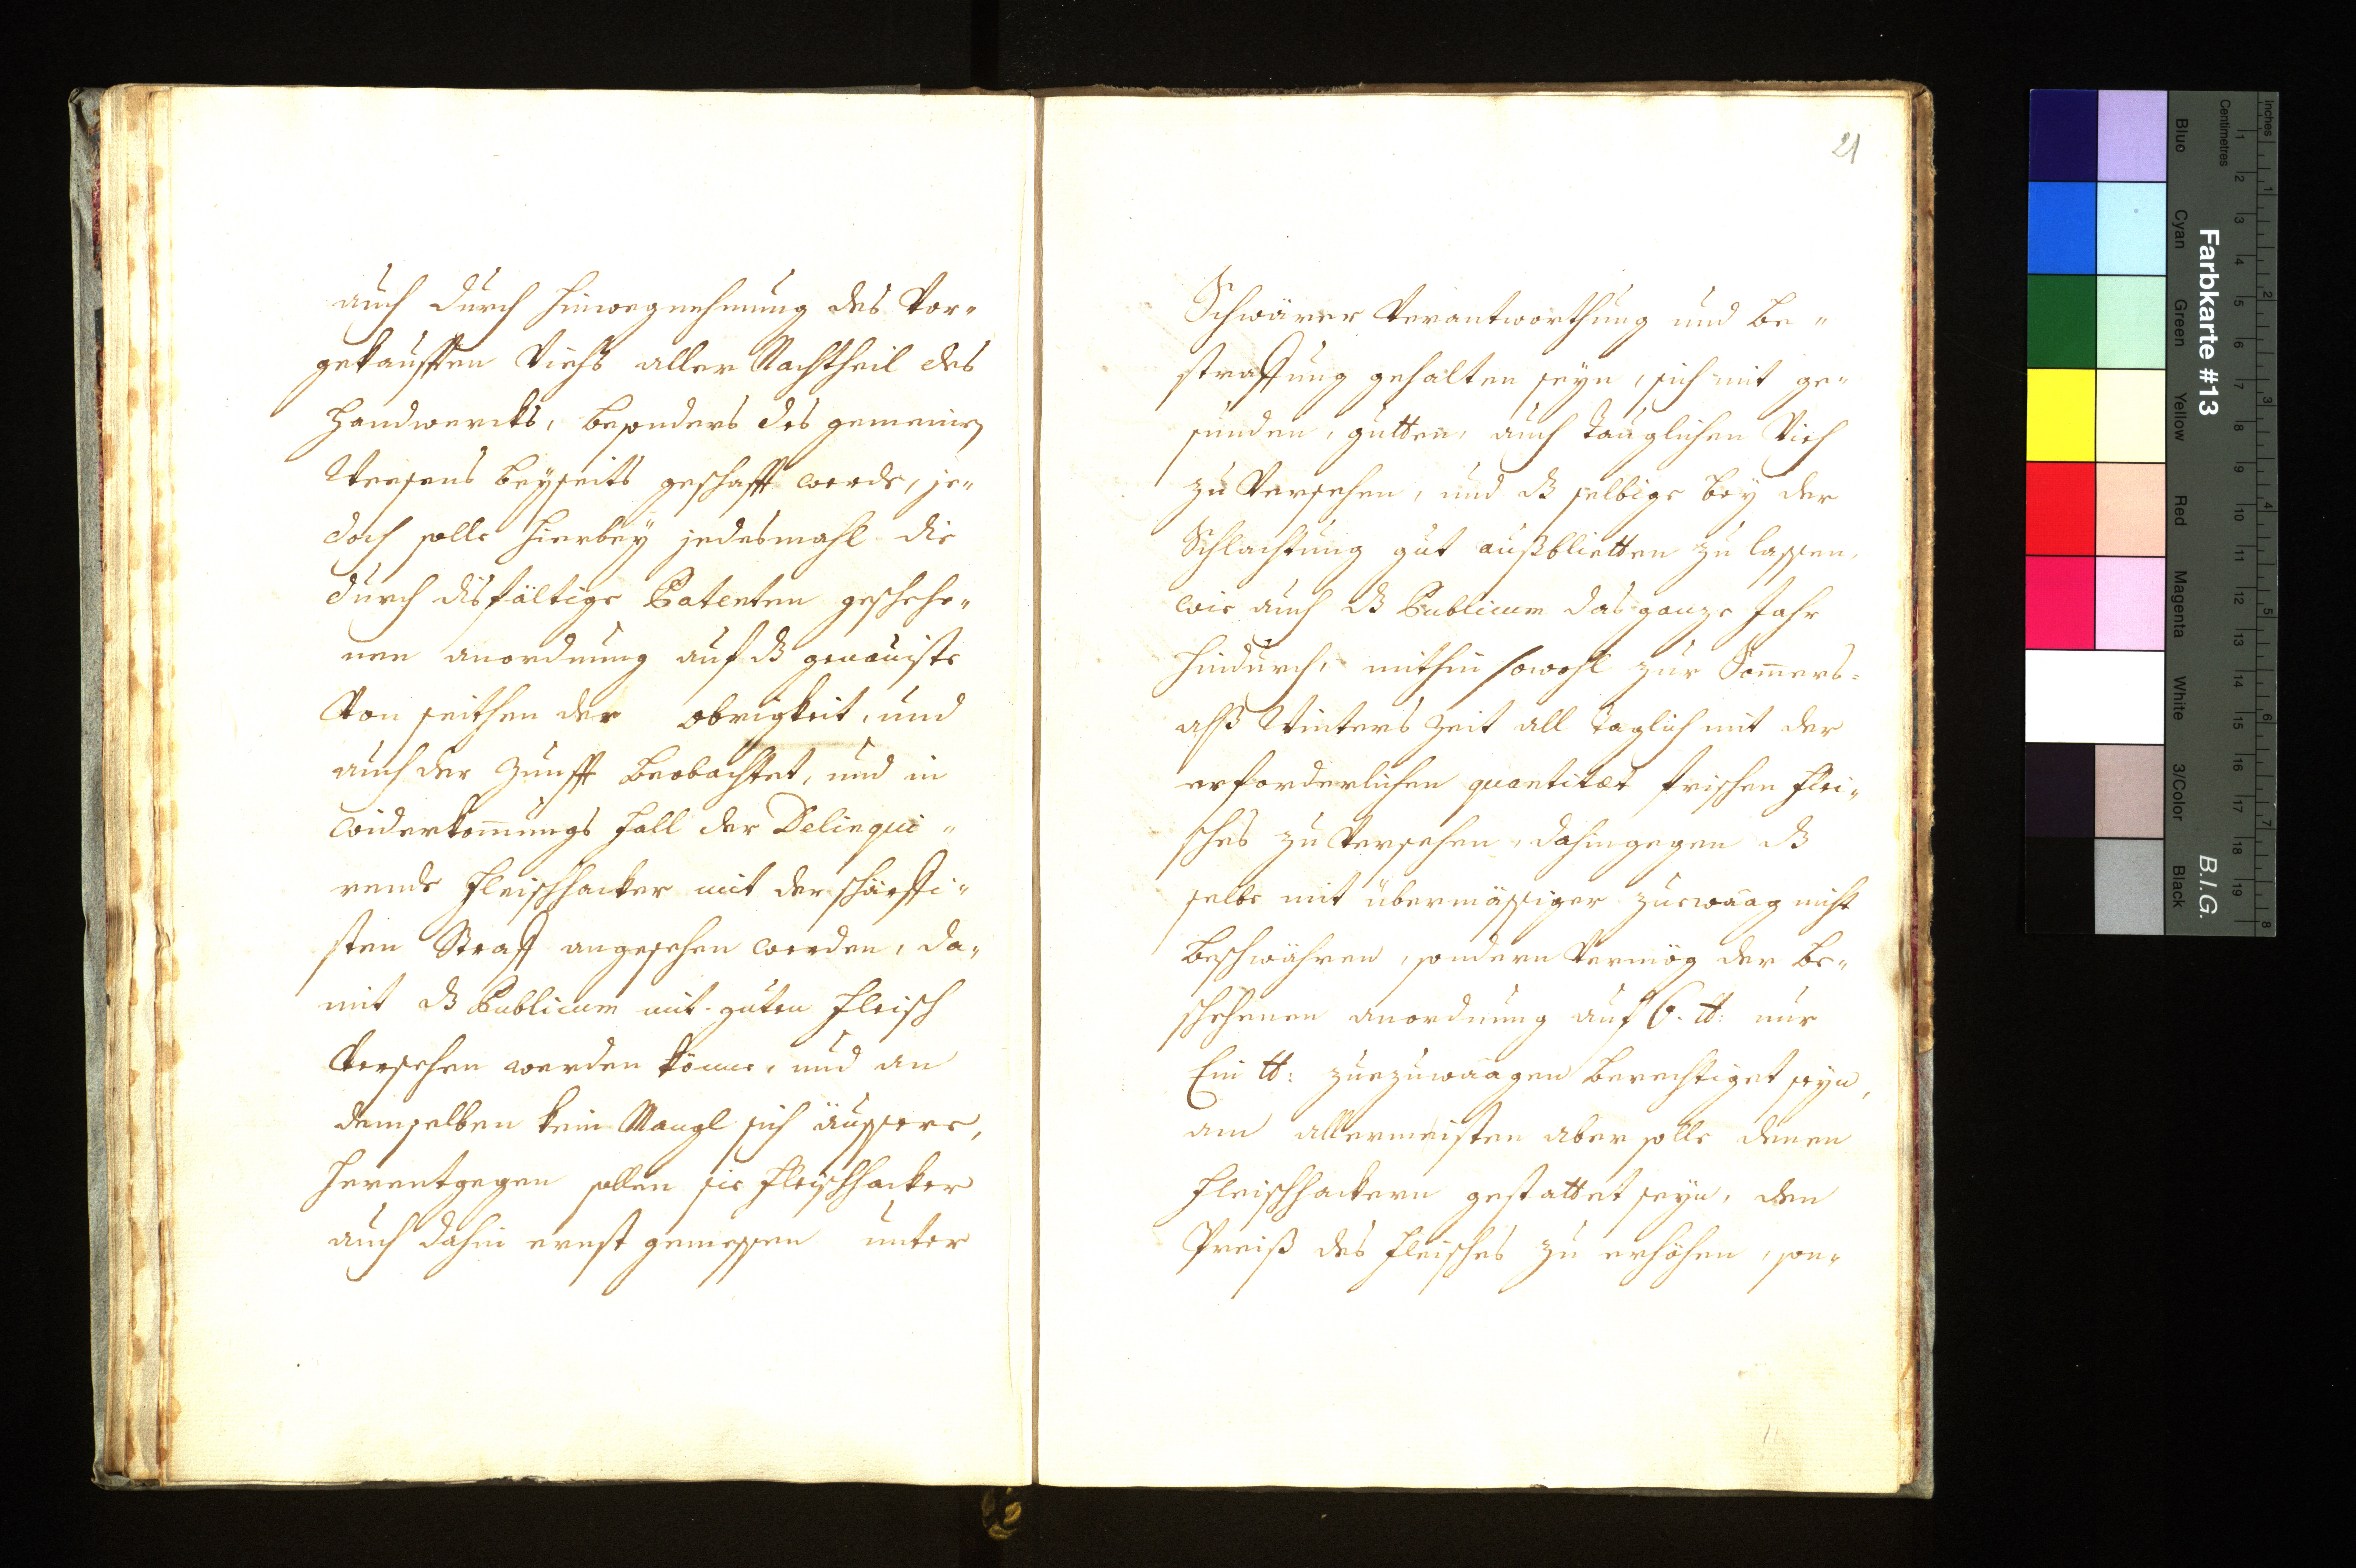 auch durch hinwegnehmung des Vor„
gekaufften Viehß aller Nachtheil des
Handwercks, besonders des gemeinen
Weesens beyseits geschafft werde, je„
doch solle hierbey jedesmahl die
durch disfältige Patenten geschehe„
nen anordnung auf dß genauiste
Von seithen der obrigkeit, und
auch der Zunfft beobachtet, und in
widerkom̄ungs fall der Delinqui„
rende Fleischhacker mit der schärffi„
sten Straff angesehen werden, da„
mit dß Publicum mit guten Fleisch
Versehen werden könne, und an
demselben kein Mangl sich äussere,
Herentgegen sollen sie Fleischhacker
auch dahin ernst gemessen unter
21
Schwärer Verantworthung und be„
straffung gehalten seyn, sich mit ge„
sunden, gutten, auch tauglichen Vieh
zu Versehen, und dß selbige bey der
Schlachtung gut außblietten zu lassen,
wie auch dß Publicum das ganze Jahr
hindurch, mithin sowohl zur Som̄ers=
alß Winters Zeit all taglich mit der
erforderlichen quantitæt frischen Flei„
sches zu Versehen, dahingegen dß
selbe mit übermässiger zuewaag nicht
beschwähren, sondern Vermög der be„
schehenen anordnung auf 6. ℔: nur
Ein ℔: zuezuwaagen berechtiget seyn,
am allermeisten aber solle denen
Fleischhackern gestattet seyn, den
Preiß des Fleisches zu erhöhen, son„
Farbkarte #13
B.I.G.
Inches
Centimetres
Blue
Cyan
Green
Yellow
Red
Magenta
White
3/Color
Black
1
2
3
4
5
6
7
8
9
10
11
12
13
14
15
16
17
18
19
1
2
3
4
5
6
7
8